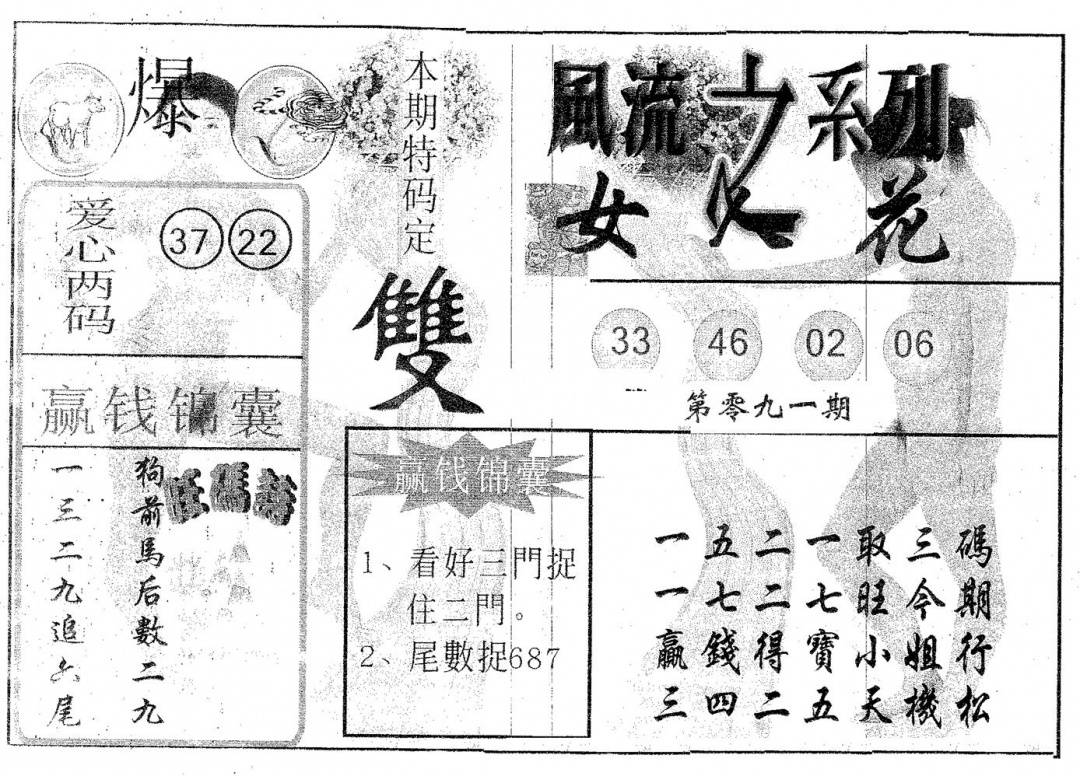 爆
爱心两码
37 22
赢钱锦囊
狗前馬后數二九
一三二九追六尾
本期特码定
雙
赢钱锦囊
1、看好三門捉
住二門。
2、尾數捉687
風流之系列
女人花
33 46 02 06
第零九一期
一五二一取三碼
一七二七旺今期
贏錢得寶小姐行
三四二五天機松